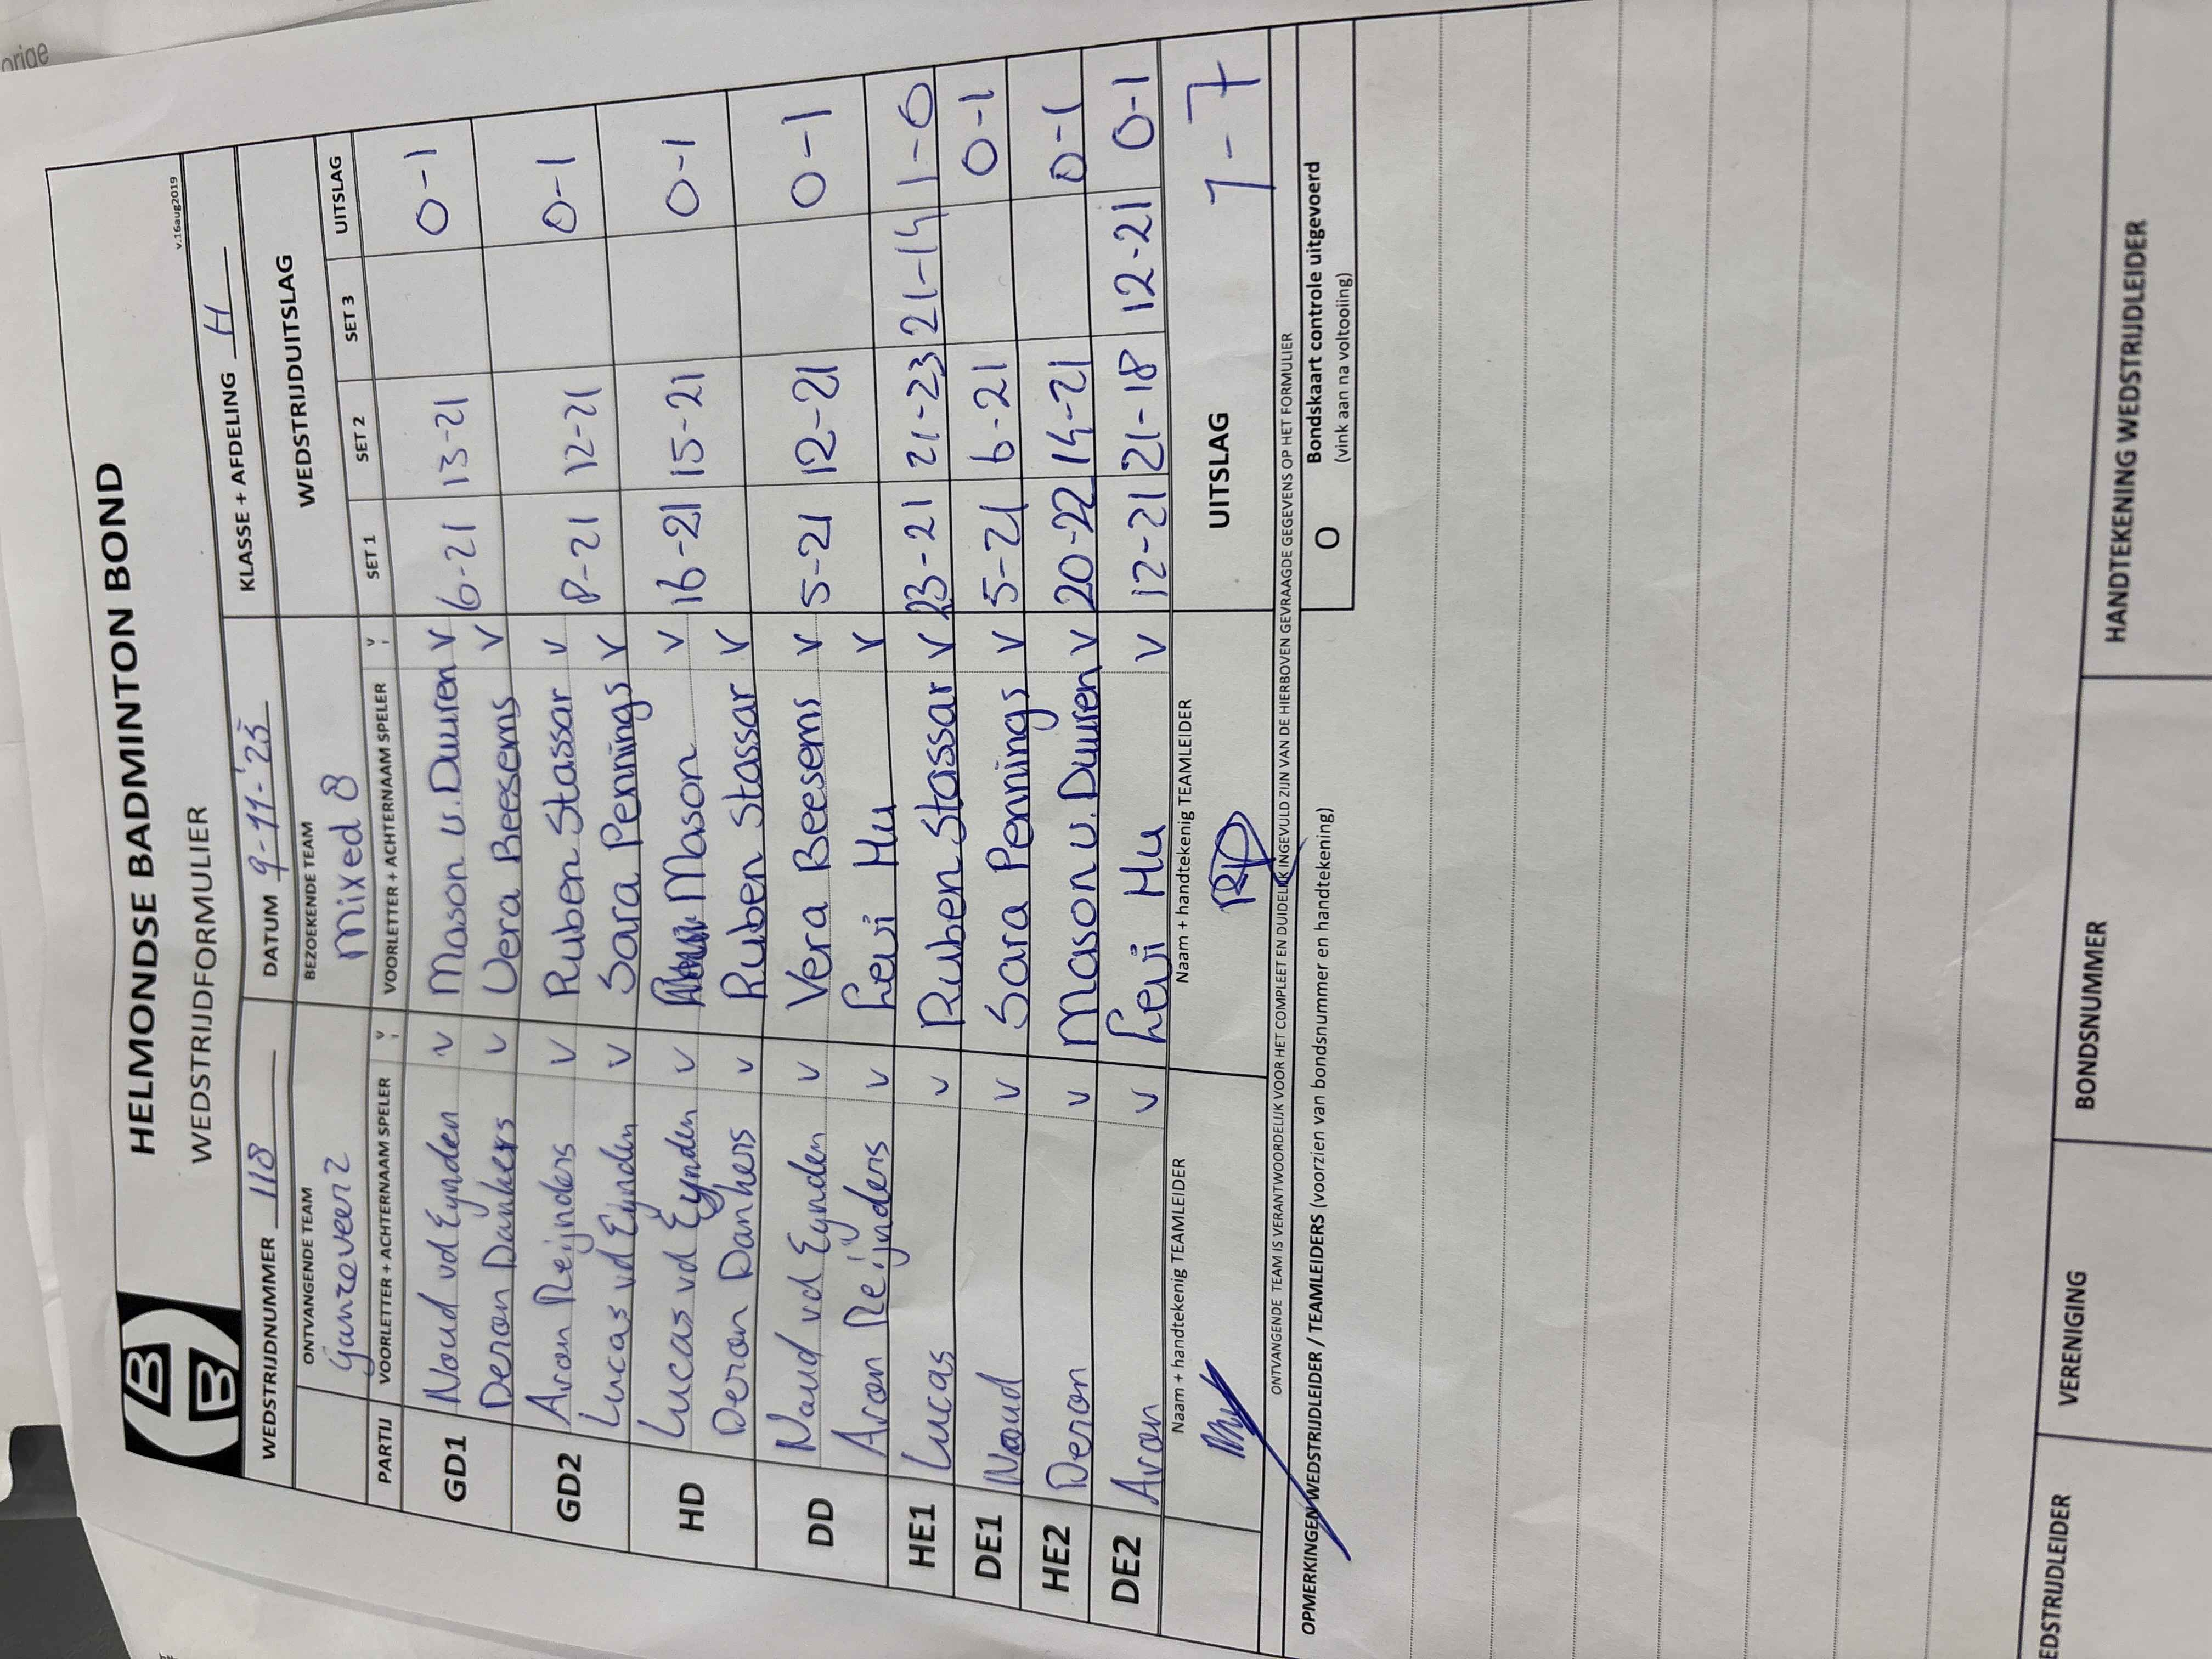 orige
HELMONDSE BADMINTON BOND
WEDSTRIJDFORMULIER
v.16aug2019
WEDSTRIJDNUMMER 118 DATUM 9-11-'25 KLASSE + AFDELING H
ONTVANGENDE TEAM BEZOEKENDE TEAM WEDSTRIJDUITSLAG
Ganzeveer 2 Mixed 8
PARTIJ VOORLETTER + ACHTERNAAM SPELER V VOORLETTER + ACHTERNAAM SPELER V SET 1 SET 2 SET 3 UITSLAG
GD1 Noud vd Eynden v Mason v. Duuren v 6-21 13-21 0-1
Deron Dankers v Vera Beesems v
GD2 Aron Reijnders v Ruben Stassar v 8-21 12-21 0-1
Lucas vd Eynden v Sara Pennings v
HD Lucas vd Eynden v Mason v 16-21 15-21 0-1
Deron Dankers v Ruben Stassar v
DD Noud vd Eynden v Vera Beesems v 5-21 12-21 0-1
Aron Reijnders v Levi Hu v
HE1 Lucas v Ruben Stassar v 23-21 21-23 21-14 1-0
DE1 Noud v Sara Pennings v 5-21 6-21 0-1
HE2 Deron v Mason v. Duuren v 20-22 14-21 0-1
DE2 Aron v Levi Hu v 12-21 21-18 12-21 0-1
Naam + handtekenig TEAMLEIDER Naam + handtekenig TEAMLEIDER UITSLAG 1-7
ONTVANGENDE TEAM IS VERANTWOORDELIJK VOOR HET COMPLEET EN DUIDELIJK INGEVULD ZIJN VAN DE HIERBOVEN GEVRAAGDE GEGEVENS OP HET FORMULIER
OPMERKINGEN WEDSTRIJDLEIDER / TEAMLEIDERS (voorzien van bondsnummer en handtekening)
O Bondskaart controle uitgevoerd
(vink aan na voltooiing)
EDSTRIJDLEIDER VERENIGING BONDSNUMMER HANDTEKENING WEDSTRIJDLEIDER